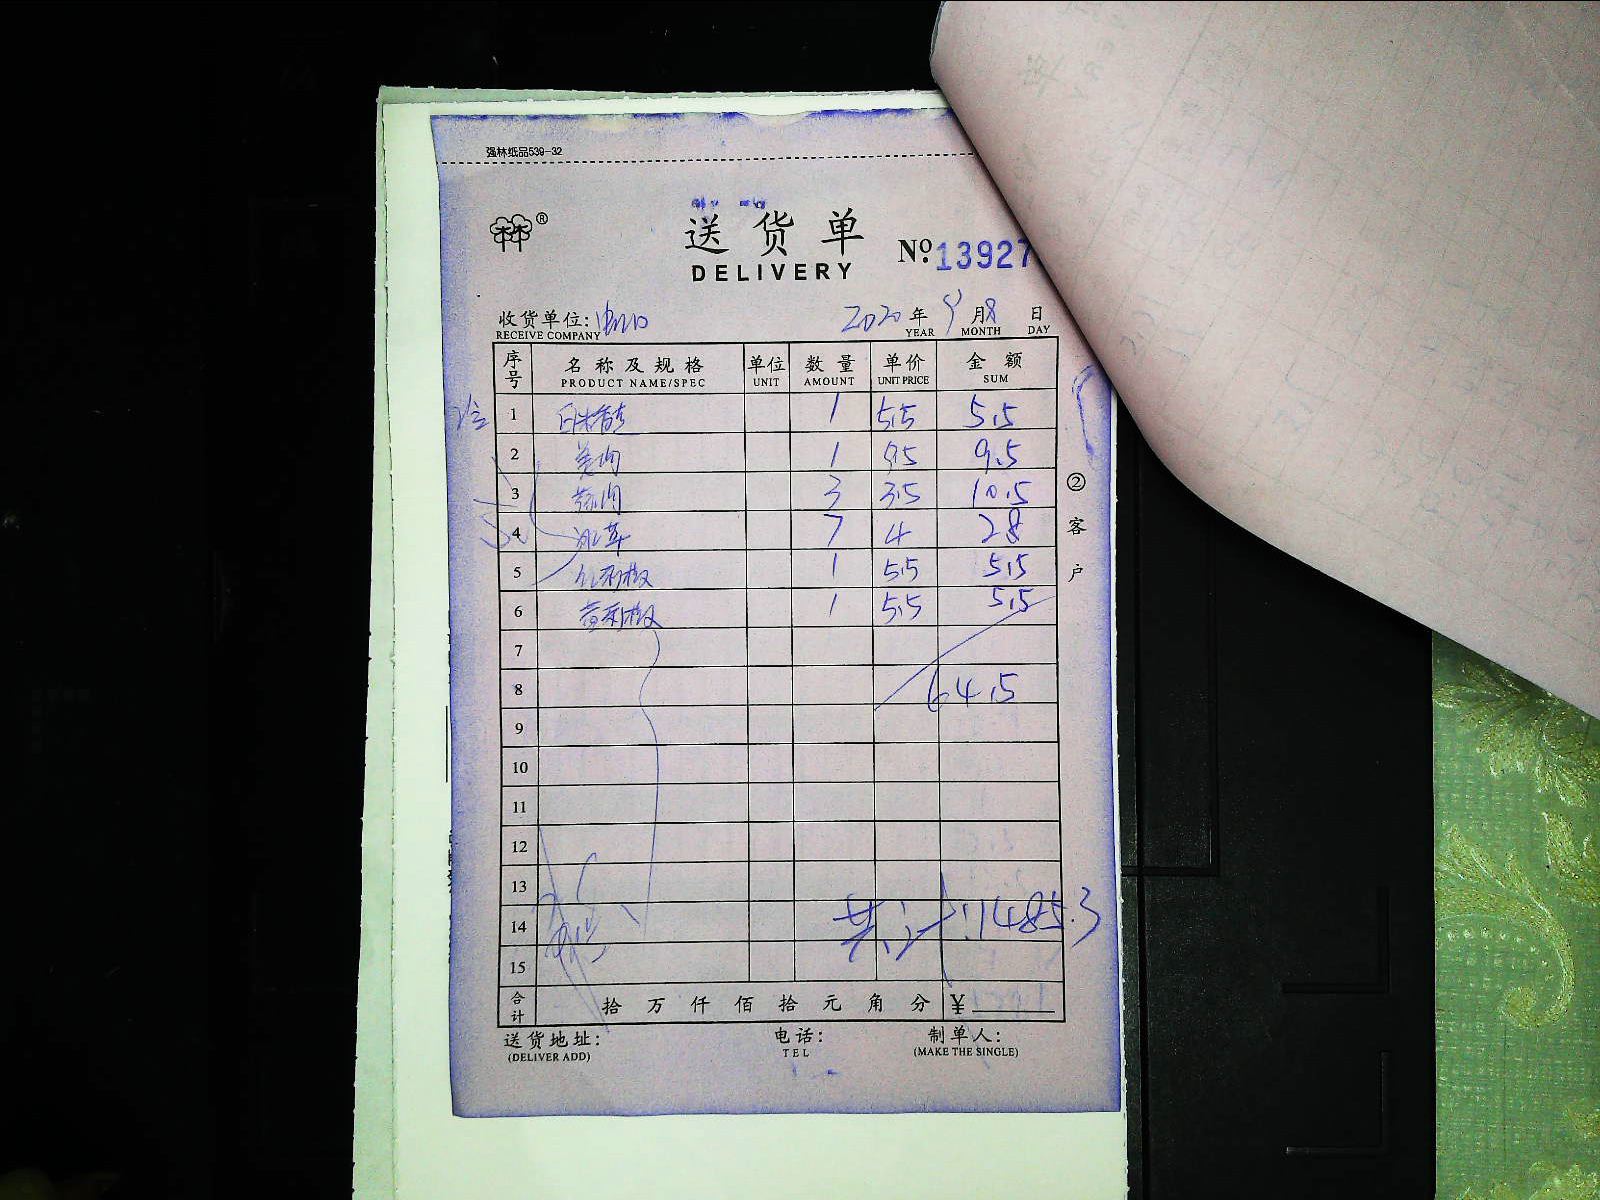 强林纸品539-32
®
送货单
DELIVERY
No. 13927
收货单位:
RECEIVE COMPANY
2020年9月8日
YEAR MONTH DAY
序号 名称及规格 单位 数量 单价 金额
PRODUCT NAME/SPEC UNIT AMOUNT UNIT PRICE SUM
1 1 5.5 5.5
2 1 9.5 9.5
3 3 3.5 10.5
4 冰草 7 4 28
5 1 5.5 5.5
6 黄彩椒 1 5.5 5.5
7
8 64.5
9
10
11
12
13
14 共计:1485.3
15
合计 拾万仟佰拾元角分 ¥
送货地址: 电话: 制单人:
(DELIVER ADD) TEL (MAKE THE SINGLE)
②客户